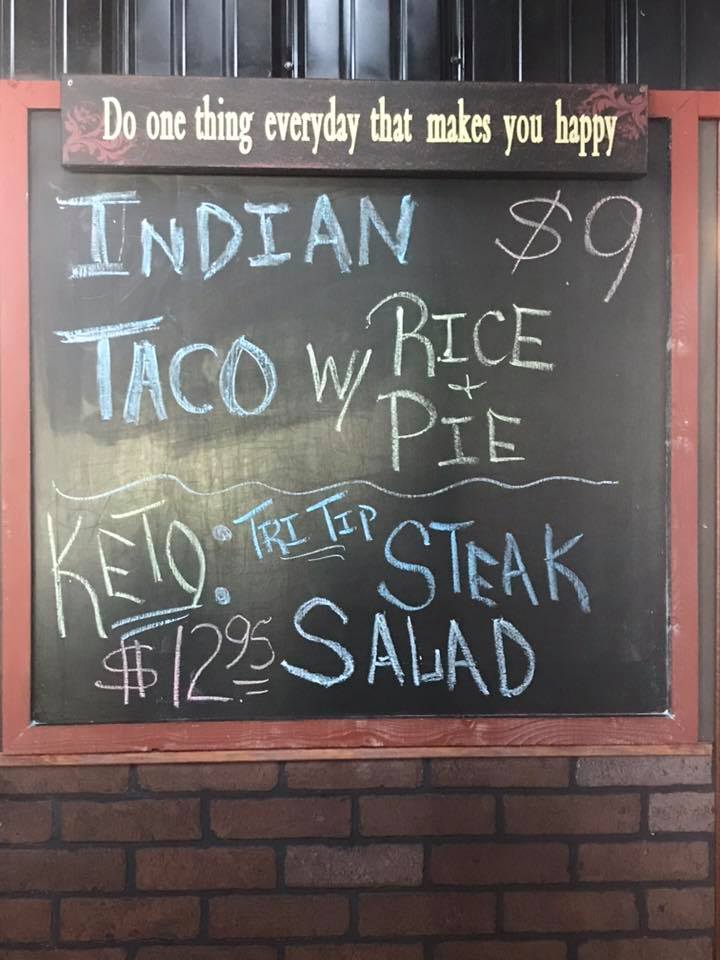 Do one thing everyday that makes you happy
INDIAN $9
TACO W/ RICE + PIE
KETO: TRI TIP STEAK
$12.95 SALAD